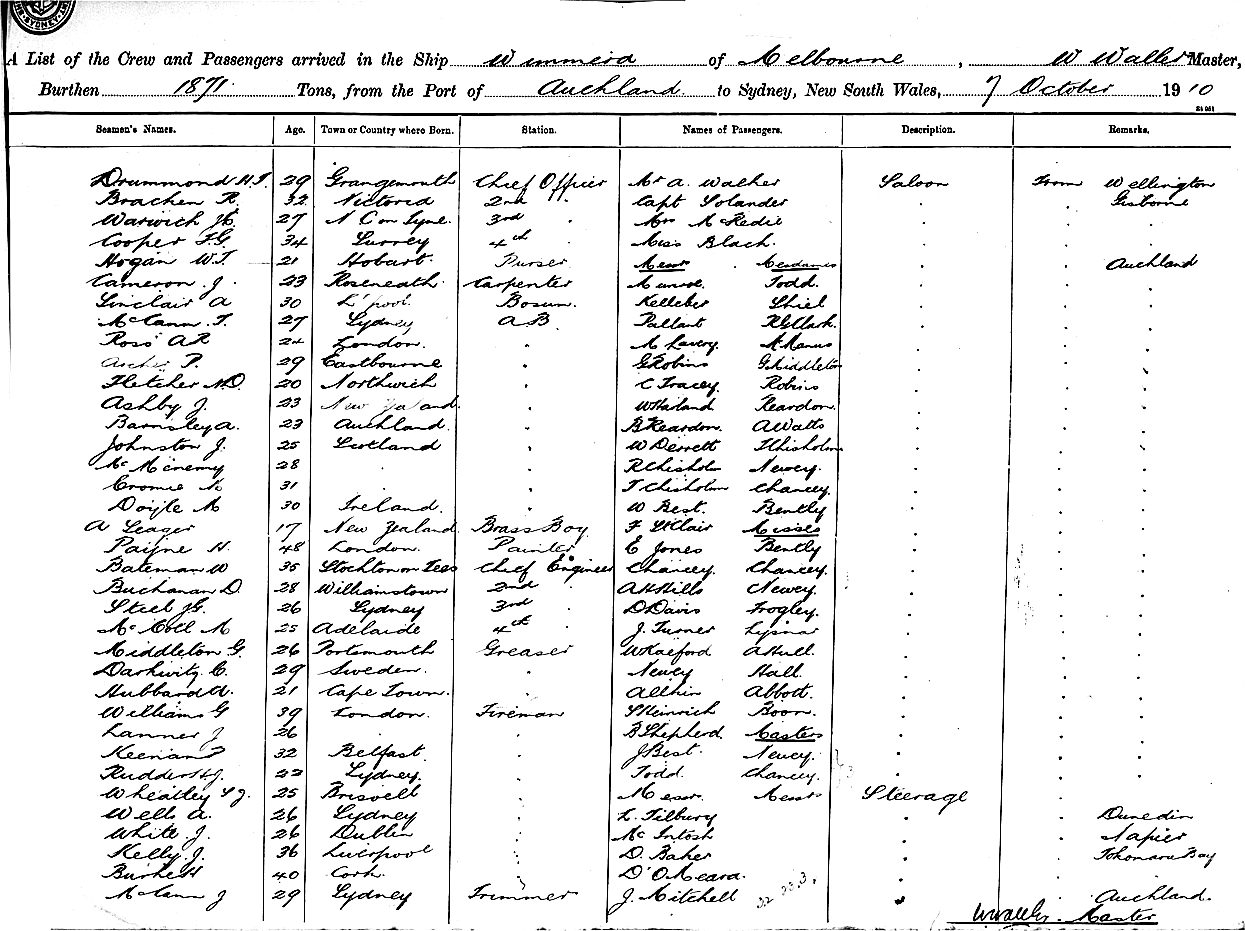 SYDNEY
A List of the Crew and Passengers arrived in the Ship Wimmera of Melbourne, W Waller Master,
Burthen 1871 Tons, from the Port of Auckland to Sydney, New South Wales, 7 October 1910
Seamen's Names. Age. Town or Country where Born. Station. Names of Passengers. Description. Remarks.
Drummond 29 Grangemouth Chief Officer Mr A. Walker Saloon From Wellington
Bracken R. 32 Victoria 2nd " Capt Solander " " Gisborne
Warwick 27 N. On Tyne. 3rd " Mrs McRedie
Cooper F.G. 34 Surrey 4th Miss Black.
Hogan W.J. 21 Hobart. Purser Messrs Mesdames Auckland
Cameron J. 23 Roseneath Carpenter Munroe Todd.
Sinclair A 30 L'pool Bosun. Kelleher Shiel
McCann. T. 27 Sydney A.B. Pallant R.G. Clark.
Ross A R 24 London. M Lavery. McManus
Archer P. 29 Eastbourne G Robins G Middleton
Fletcher N.D. 20 Northwich C Tracey. Robins
Ashby J. 23 New Zealand. W Harland Reardon.
Barnsley A. 23 Auckland. B. Reardon. A Watts
Johnston J. 25 Scotland W Derrett F Chisholm
McMenemy 28 R Chisholm Newey.
Cromie 31 T Chisholm Chancey.
Doyle M 30 Ireland. W Best. Bently
A Seager 17 New Zealand Brass Boy F St Clair Misses
Payne H. 48 London. Painter E Jones Bently
Bateman W 35 Stockton on Tees Chief Engineer Chancey. Chancey.
Buchanan D. 28 Williamstown 2nd " A H Hills Newey.
Steel J.G. 26 Sydney 3rd " D Davis Frogley.
McColl M 25 Adelaide 4th " J. Turner Lysnar
Middleton G. 26 Portsmouth Greaser W Raeford A Hull.
Darkwitz C. 29 Sweden. Newey Hall.
Hubbard A. 21 Cape Town. Allkin Abbott.
Williams G 39 London. Fireman S Heinrich Boon.
Lanner J 26 B Shepherd. Masters
Keenan P 32 Belfast. J Best. Newey.
Rudder H.J. 22 Sydney. Todd. Chancey.
Wheatley S J. 25 Messrs Messrs Steerage
Wells A. 26 Sydney L. Tilbury Dunedin
White J. 26 Dublin McIntosh Napier
Kelly J. 36 Liverpool D. Baker Tokomaru Bay
Burke H 40 Cork. D'O Meara.
McCann J 29 Sydney Trimmer J. Mitchell Auckland.
W Waller. Master